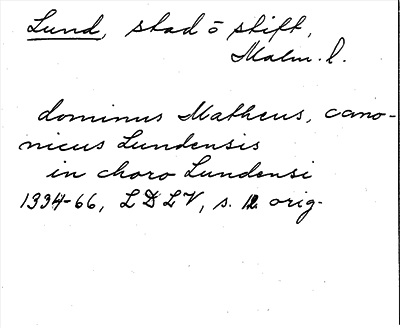 Lund, stad o stift,
Malm. l.
dominus Matheus, cano-
nicus Lundensis
in choro Lundensi
1334-66, LDLV, s. 12 orig.